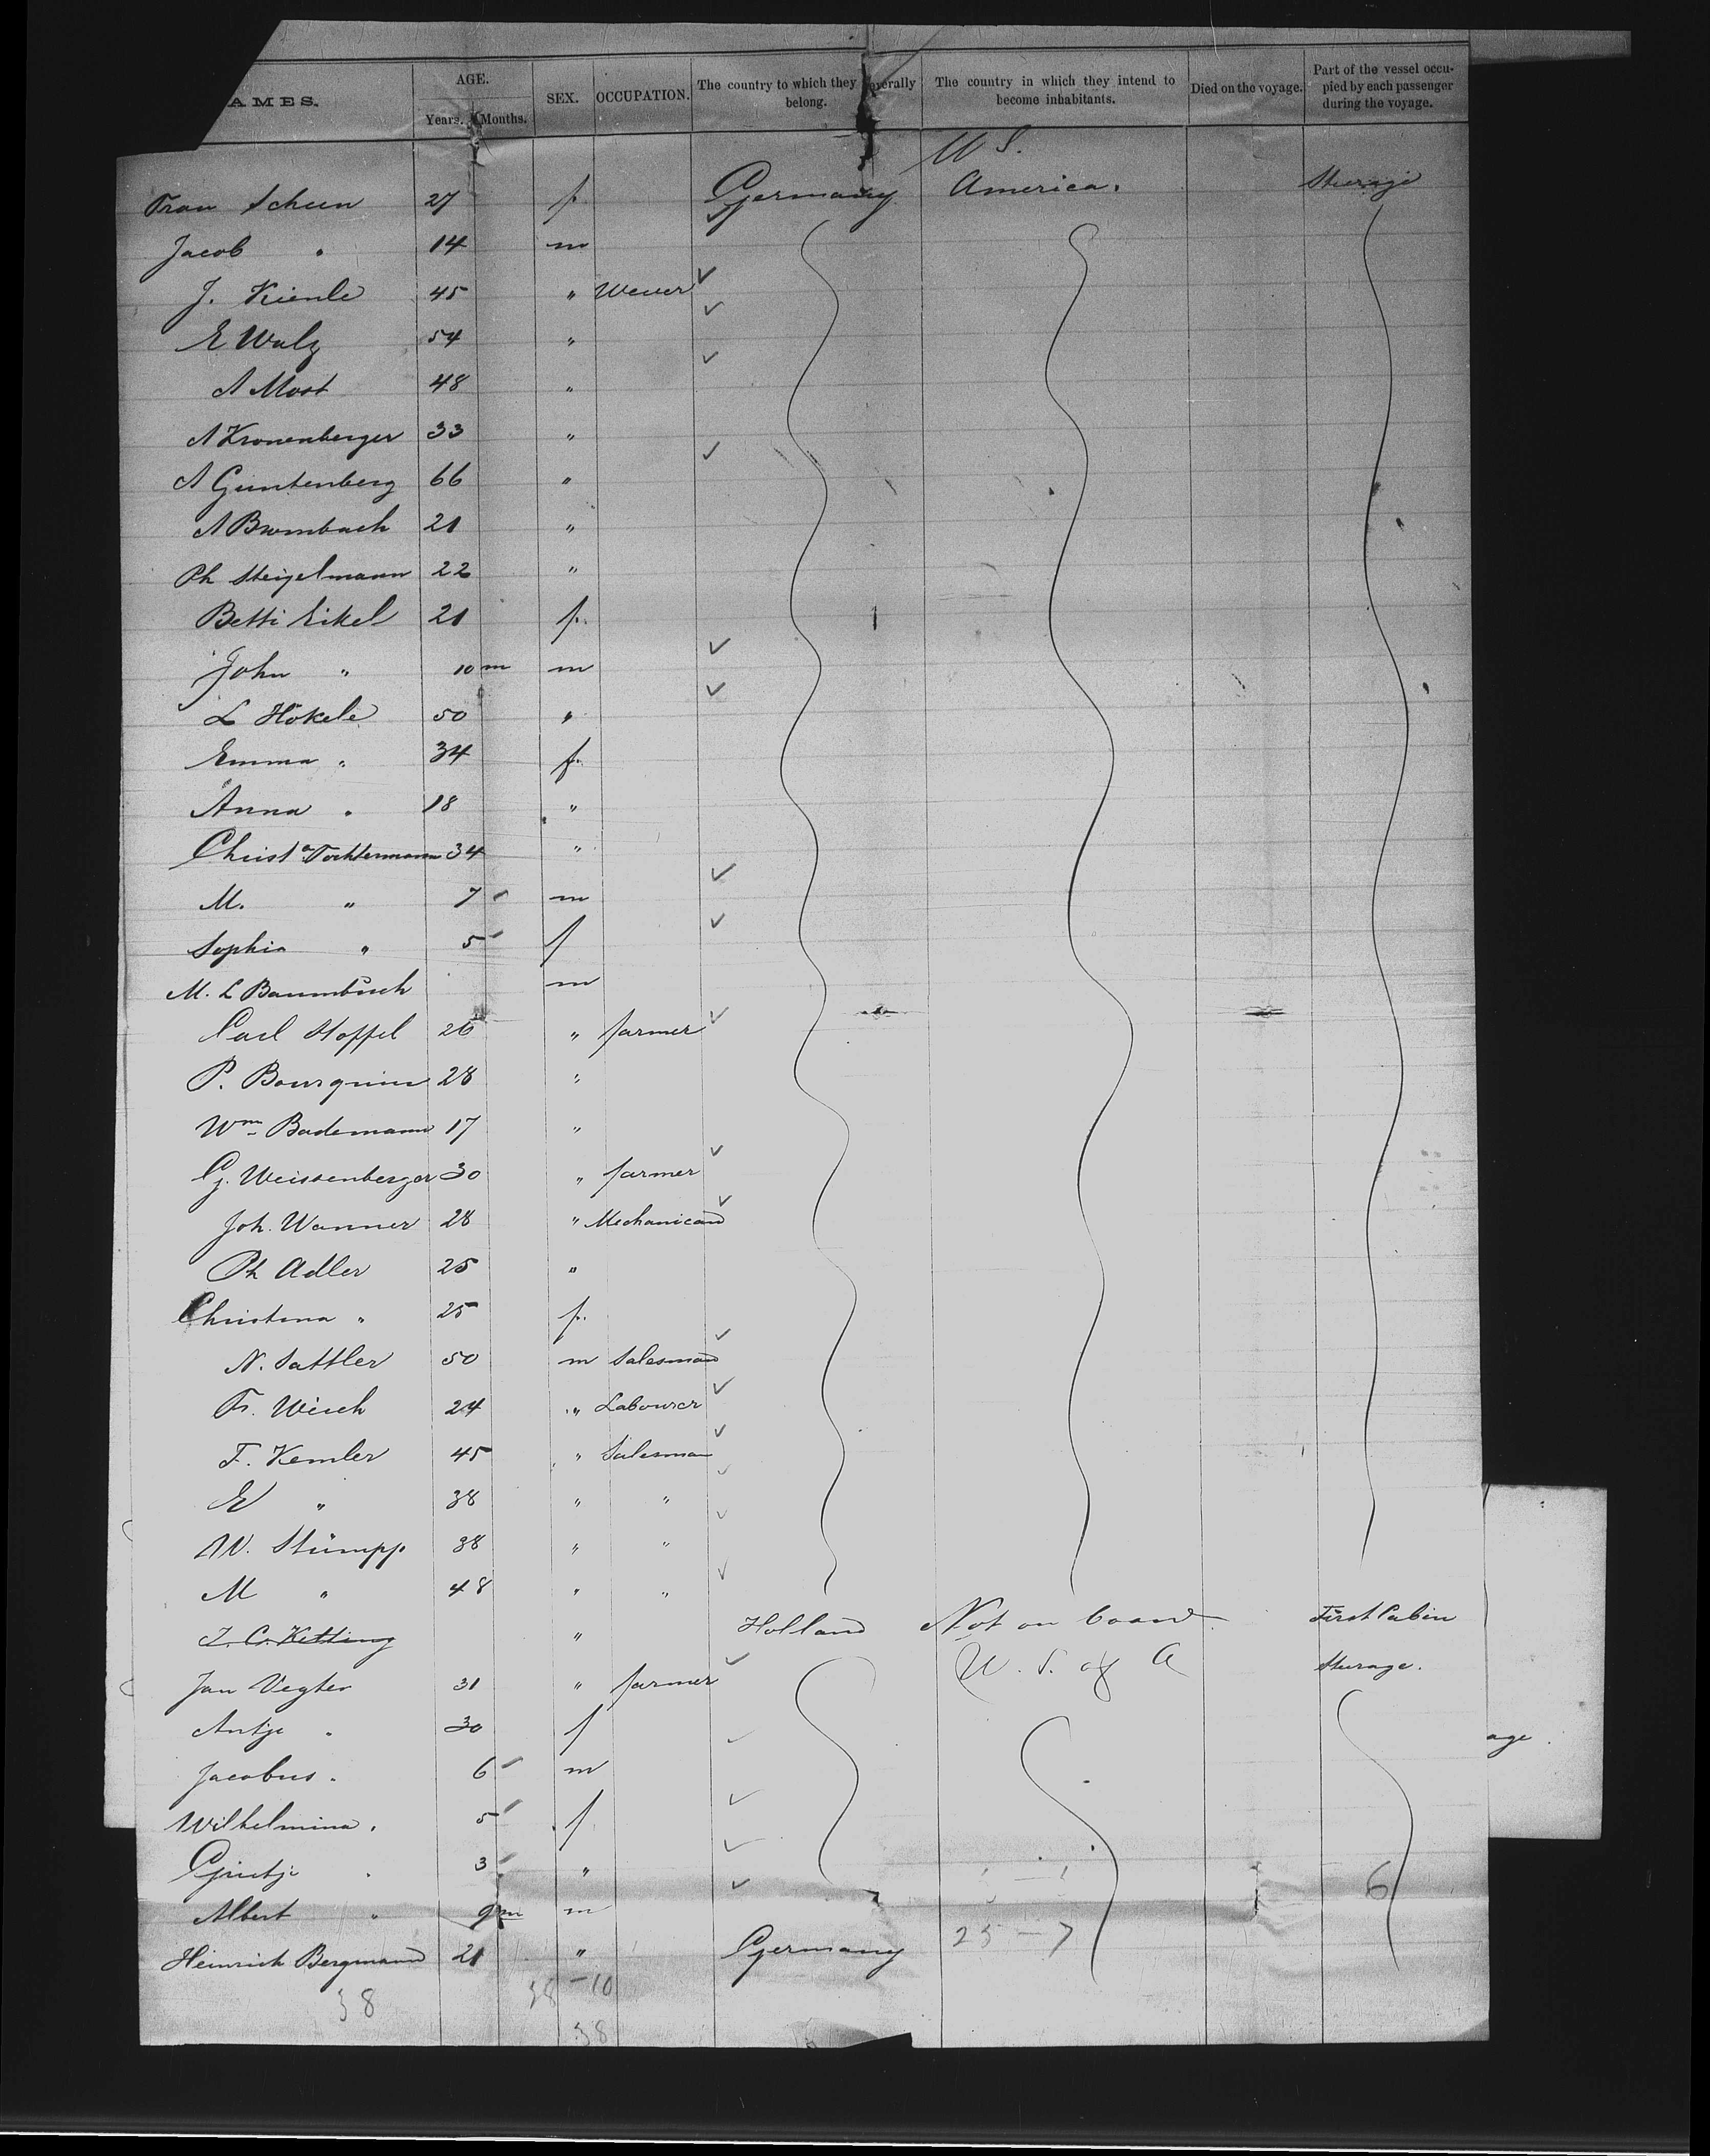 AMES. AGE. SEX. OCCUPATION. The country to which they severally belong. The country in which they intend to become inhabitants. Died on the voyage. Part of the vessel occupied by each passenger during the voyage.
Years. Months.
U S.
Frau Scheen 27 f. Germany America. Steerage
Jacob " 14 m
J. Kienle 45 " Wever
E Walz 54 "
A Mast 48 "
A Kronenberger 33 "
A Guntenberg 66 "
A Brombach 21 "
Ph Steigelmann 22 "
Betti Eikel 21 f.
John " 10 m m
L Hökele 50 "
Emma " 34 f.
Anna " 18 "
Christa Tochtermann 34 "
M. " 7 m
Sophia " 5 f
M. L Baumbüsch m
Carl Stoffel 26 " farmer
P. Bourquin 28 "
Wm Bademann 17 "
G. Weissenberger 30 " farmer
Joh. Wanner 28 " Mechanican
Ph Adler 25 "
Christena " 25 f.
N. Sattler 50 m Salesman
Fr. Wisch 24 " Labourer
F. Kemler 45 " Salesman
E " 38 " "
W. Stümpp 38 " "
M " 48 " "
I. C. Ketting " Holland Not on board First Cabin
Jan Vegter 31 " farmer U. S. of A Steerage.
Antje " 30 f
Jacobus " 6 m
age
Wilhelmina " 5 f
Grietje " 3 "
Albert " 9 m m
6
Heinrich Bergmann 21 " Germany 25 - 7
38 38 - 10
38